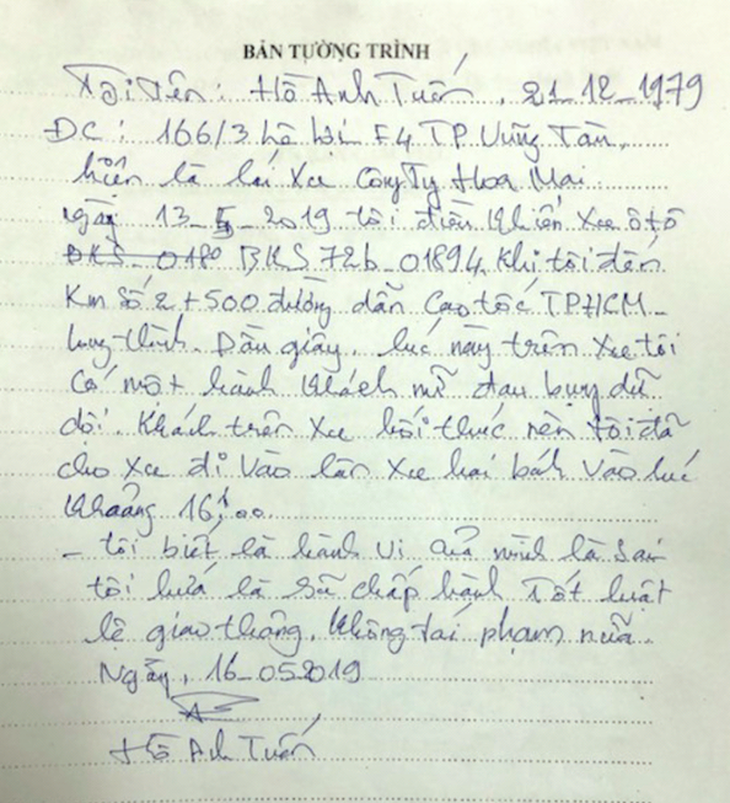 BẢN TƯỜNG TRÌNH
Tôi tên: Hồ Anh Tuấn, 21_12_1979
ĐC: 166/3 F4 TP Vũng Tàu.
hiện là lái xe Công Ty Hoa Mai.
ngày 13_5_2019 tôi điều khiển xe ô tô
BKS_0180 BKS 72b_01894. Khi tôi đến
Km số 2+500 đường dẫn Cao tốc TPHCM_
Long thành. Dầu giây. lúc này trên xe tôi
Có một hành khách nữ đau bụng dữ
dội. Khách trên xe hối thúc nên tôi đã
cho xe đi vào làn xe hai bánh vào lúc
khoảng 16h00
_ tôi biết là hành vi của mình là sai
tôi hứa là sẽ chấp hành Tốt luật
lệ giao thông. không tái phạm nữa.
Ngày, 16_052019
Hồ Anh Tuấn